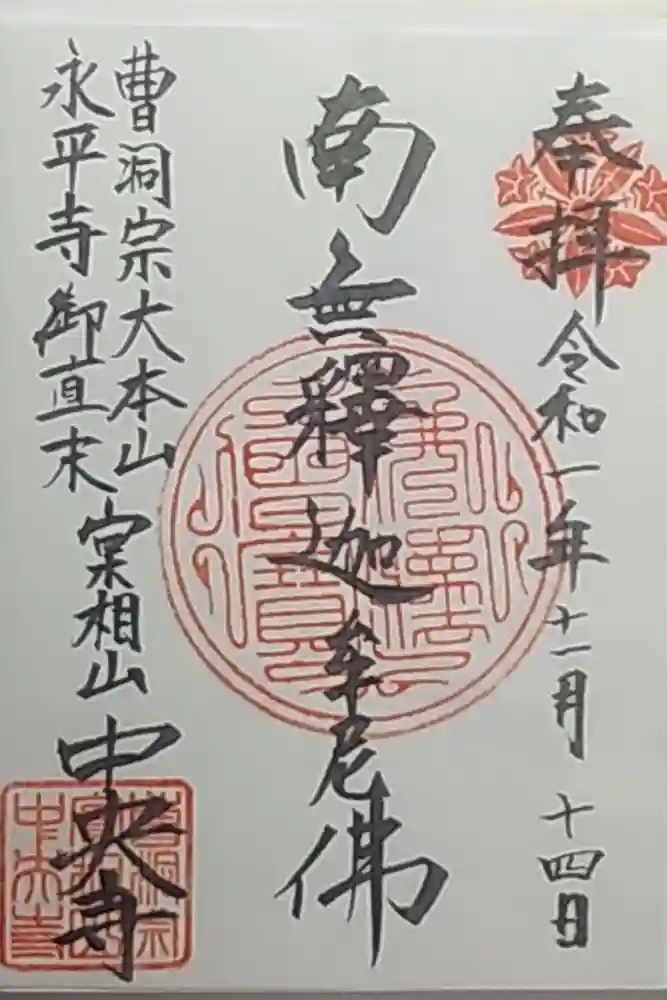 奉拝
令和一年十一月十四日
南無釋迦牟尼佛
曹洞宗大本山
永平寺御直末
宗相山
中央寺